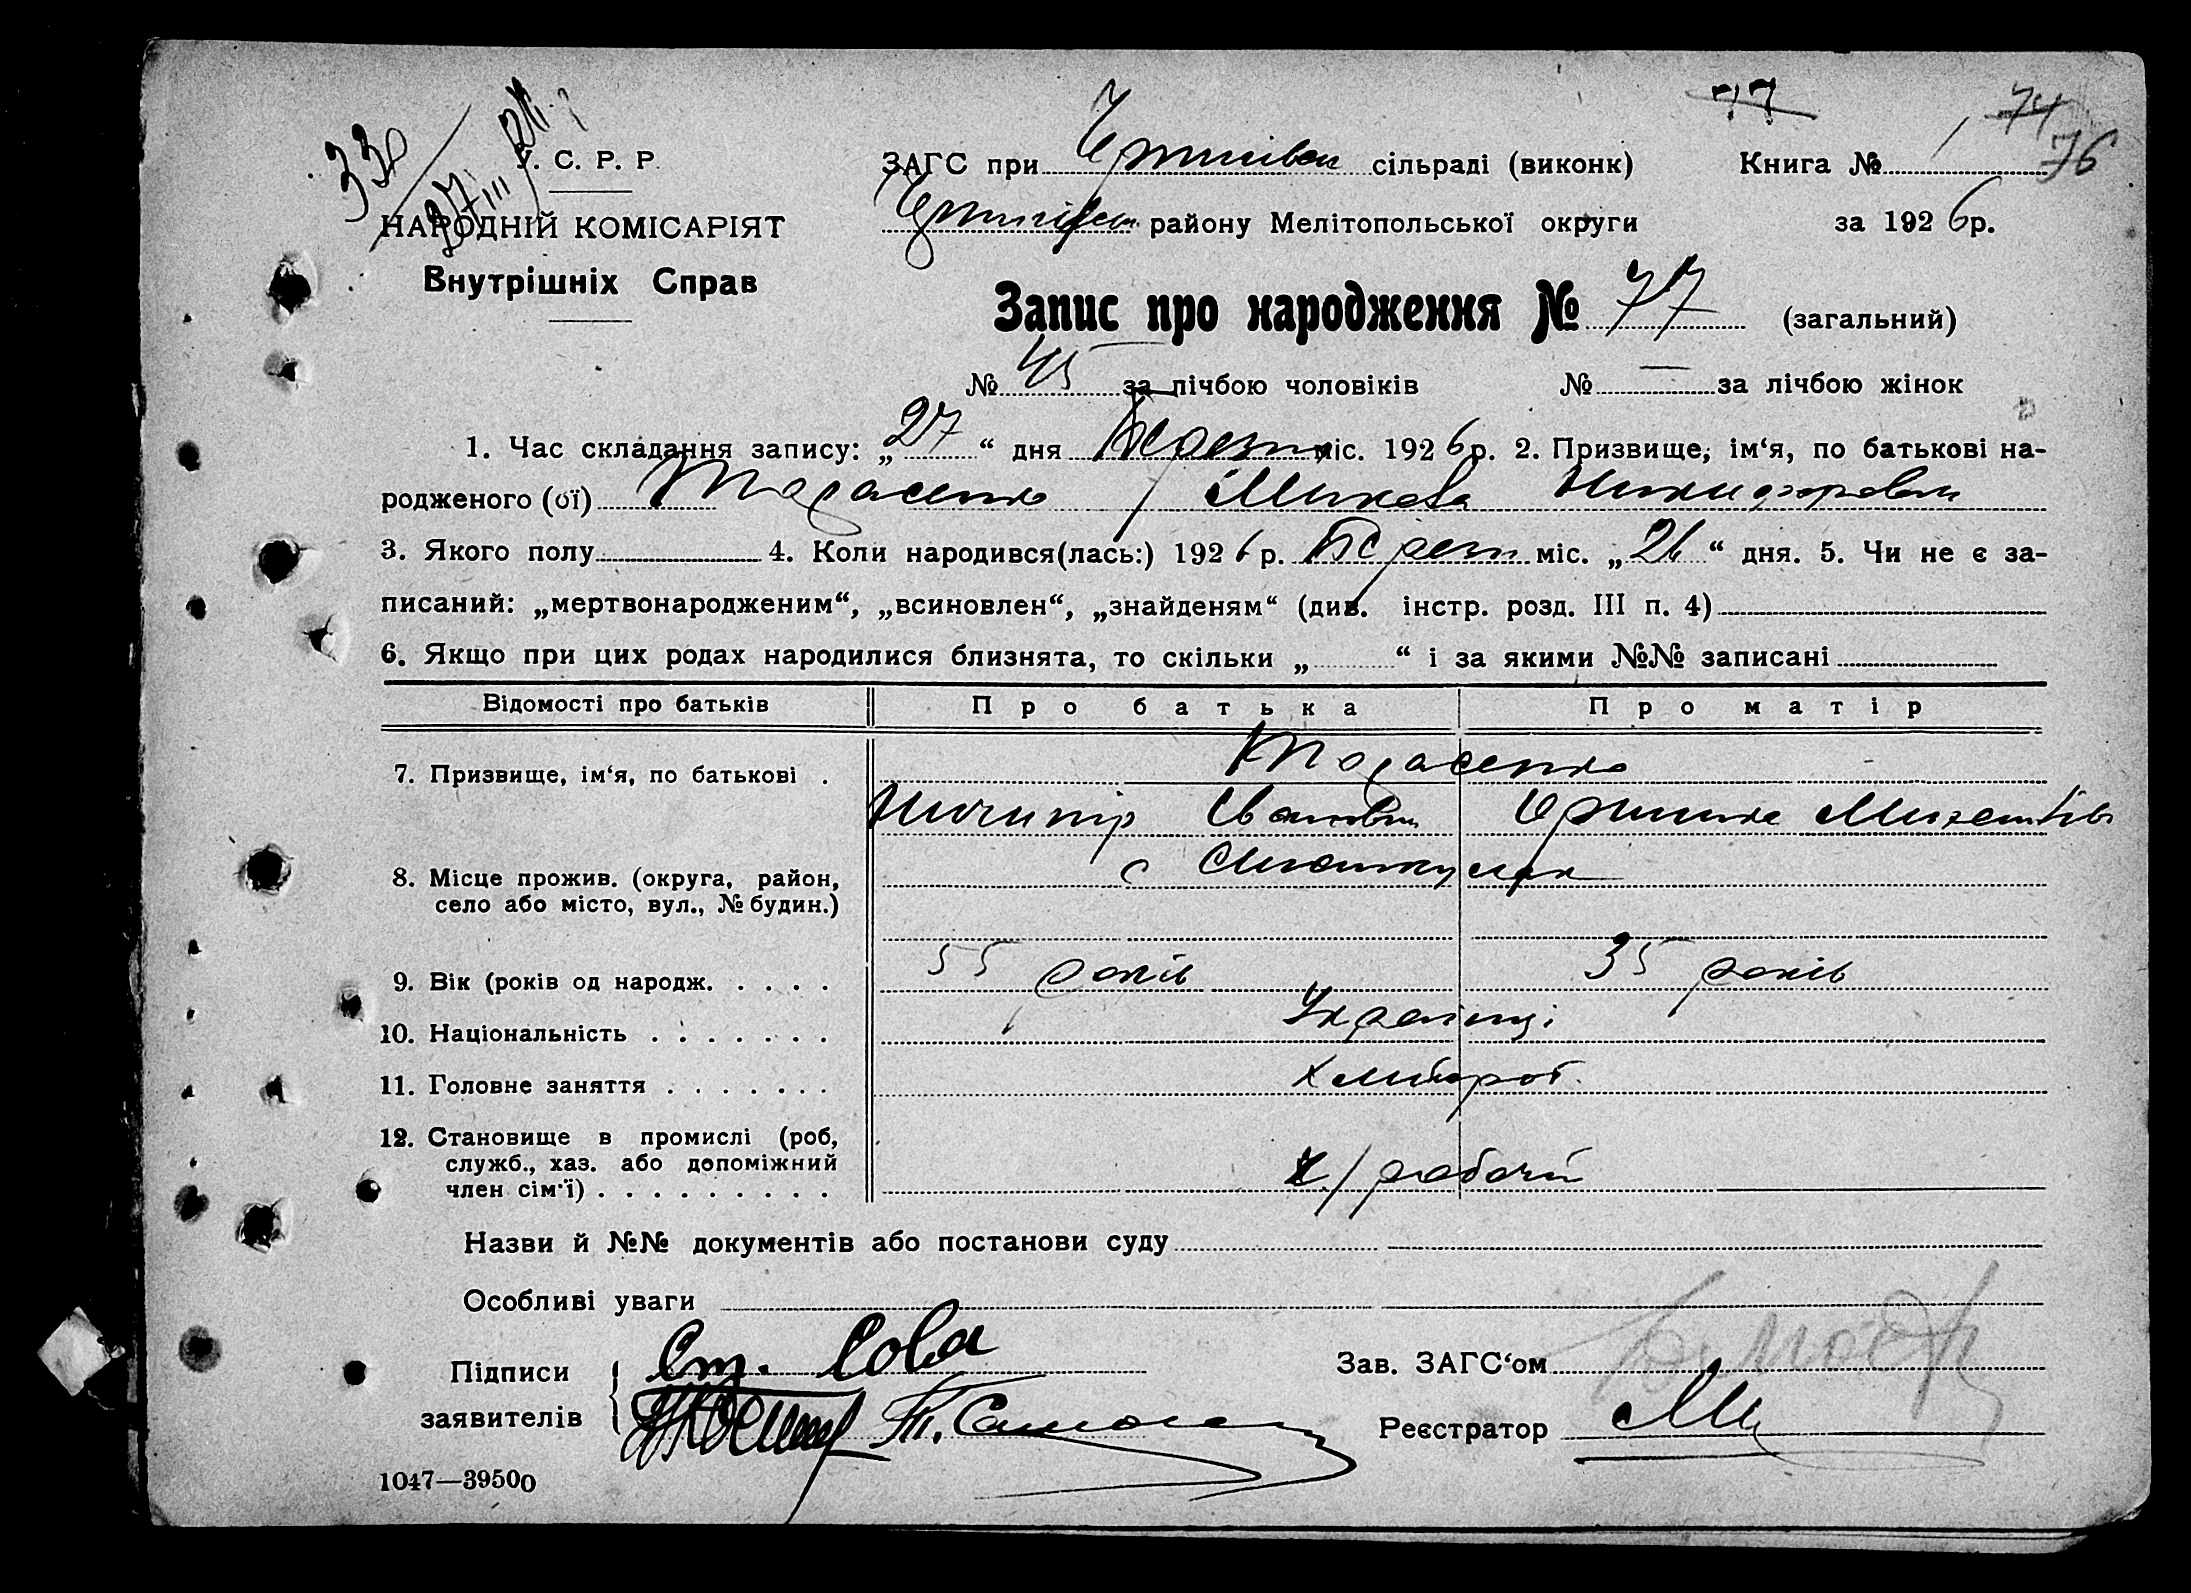 330
У. С. Р. Р.
НАРОДНІЙ КОМІСАРІЯТ
Внутрішніх Справ
77
74
76
ЗАГС при сільраді (виконк) Книга № 1
району Мелітопольської округи за 1926 р.
Запис про народження № 77 (загальний)
№ 45 за лічбою чоловіків № — за лічбою жінок
1. Час складання запису: „27“ дня міс. 1926 р. 2. Призвище, ім‘я, по батькові на-
родженого (ої) Тарасенко Микола
3. Якого полу 4. Коли народився(лась:) 1926 р. Берез міс. „26“ дня. 5. Чи не є за-
писаний: „мертвонародженим“, „всиновлен“, „знайденям“ (див. інстр. розд. III п. 4)
6. Якщо при цих родах народилися близнята, то скільки „ “ і за якими №№ записані
Відомості про батьків Про батька Про матір
7. Призвище, ім‘я, по батькові . Тарасенко
Ничипір Іванович
8. Місце прожив. (округа, район,
село або місто, вул., № будин.)
9. Вік (років од народж. . . . . 55 років 35 років
10. Національність . . . . . . . Українці
11. Головне заняття . . . . . . . хлібороб.
12. Становище в промислі (роб,
служб., хаз. або допоміжний
член сім‘ї) . . . . . . . . . рабочій
Назви й №№ документів або постанови суду
Особливі уваги
Підписи Ст. Сова Зав. ЗАГС‘ом
заявителів Реєстратор
1047—39500